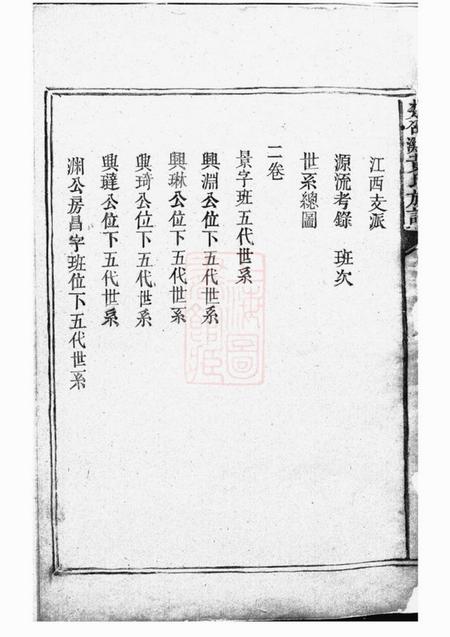 江西支派
源流考錄 班次
世系總圖
二卷
景字班五代世系
興淵公位下五代世系
興琳公位下五代世系
興琦公位下五代世系
興璉公位下五代世系
淵公房昌字班位下五代世系